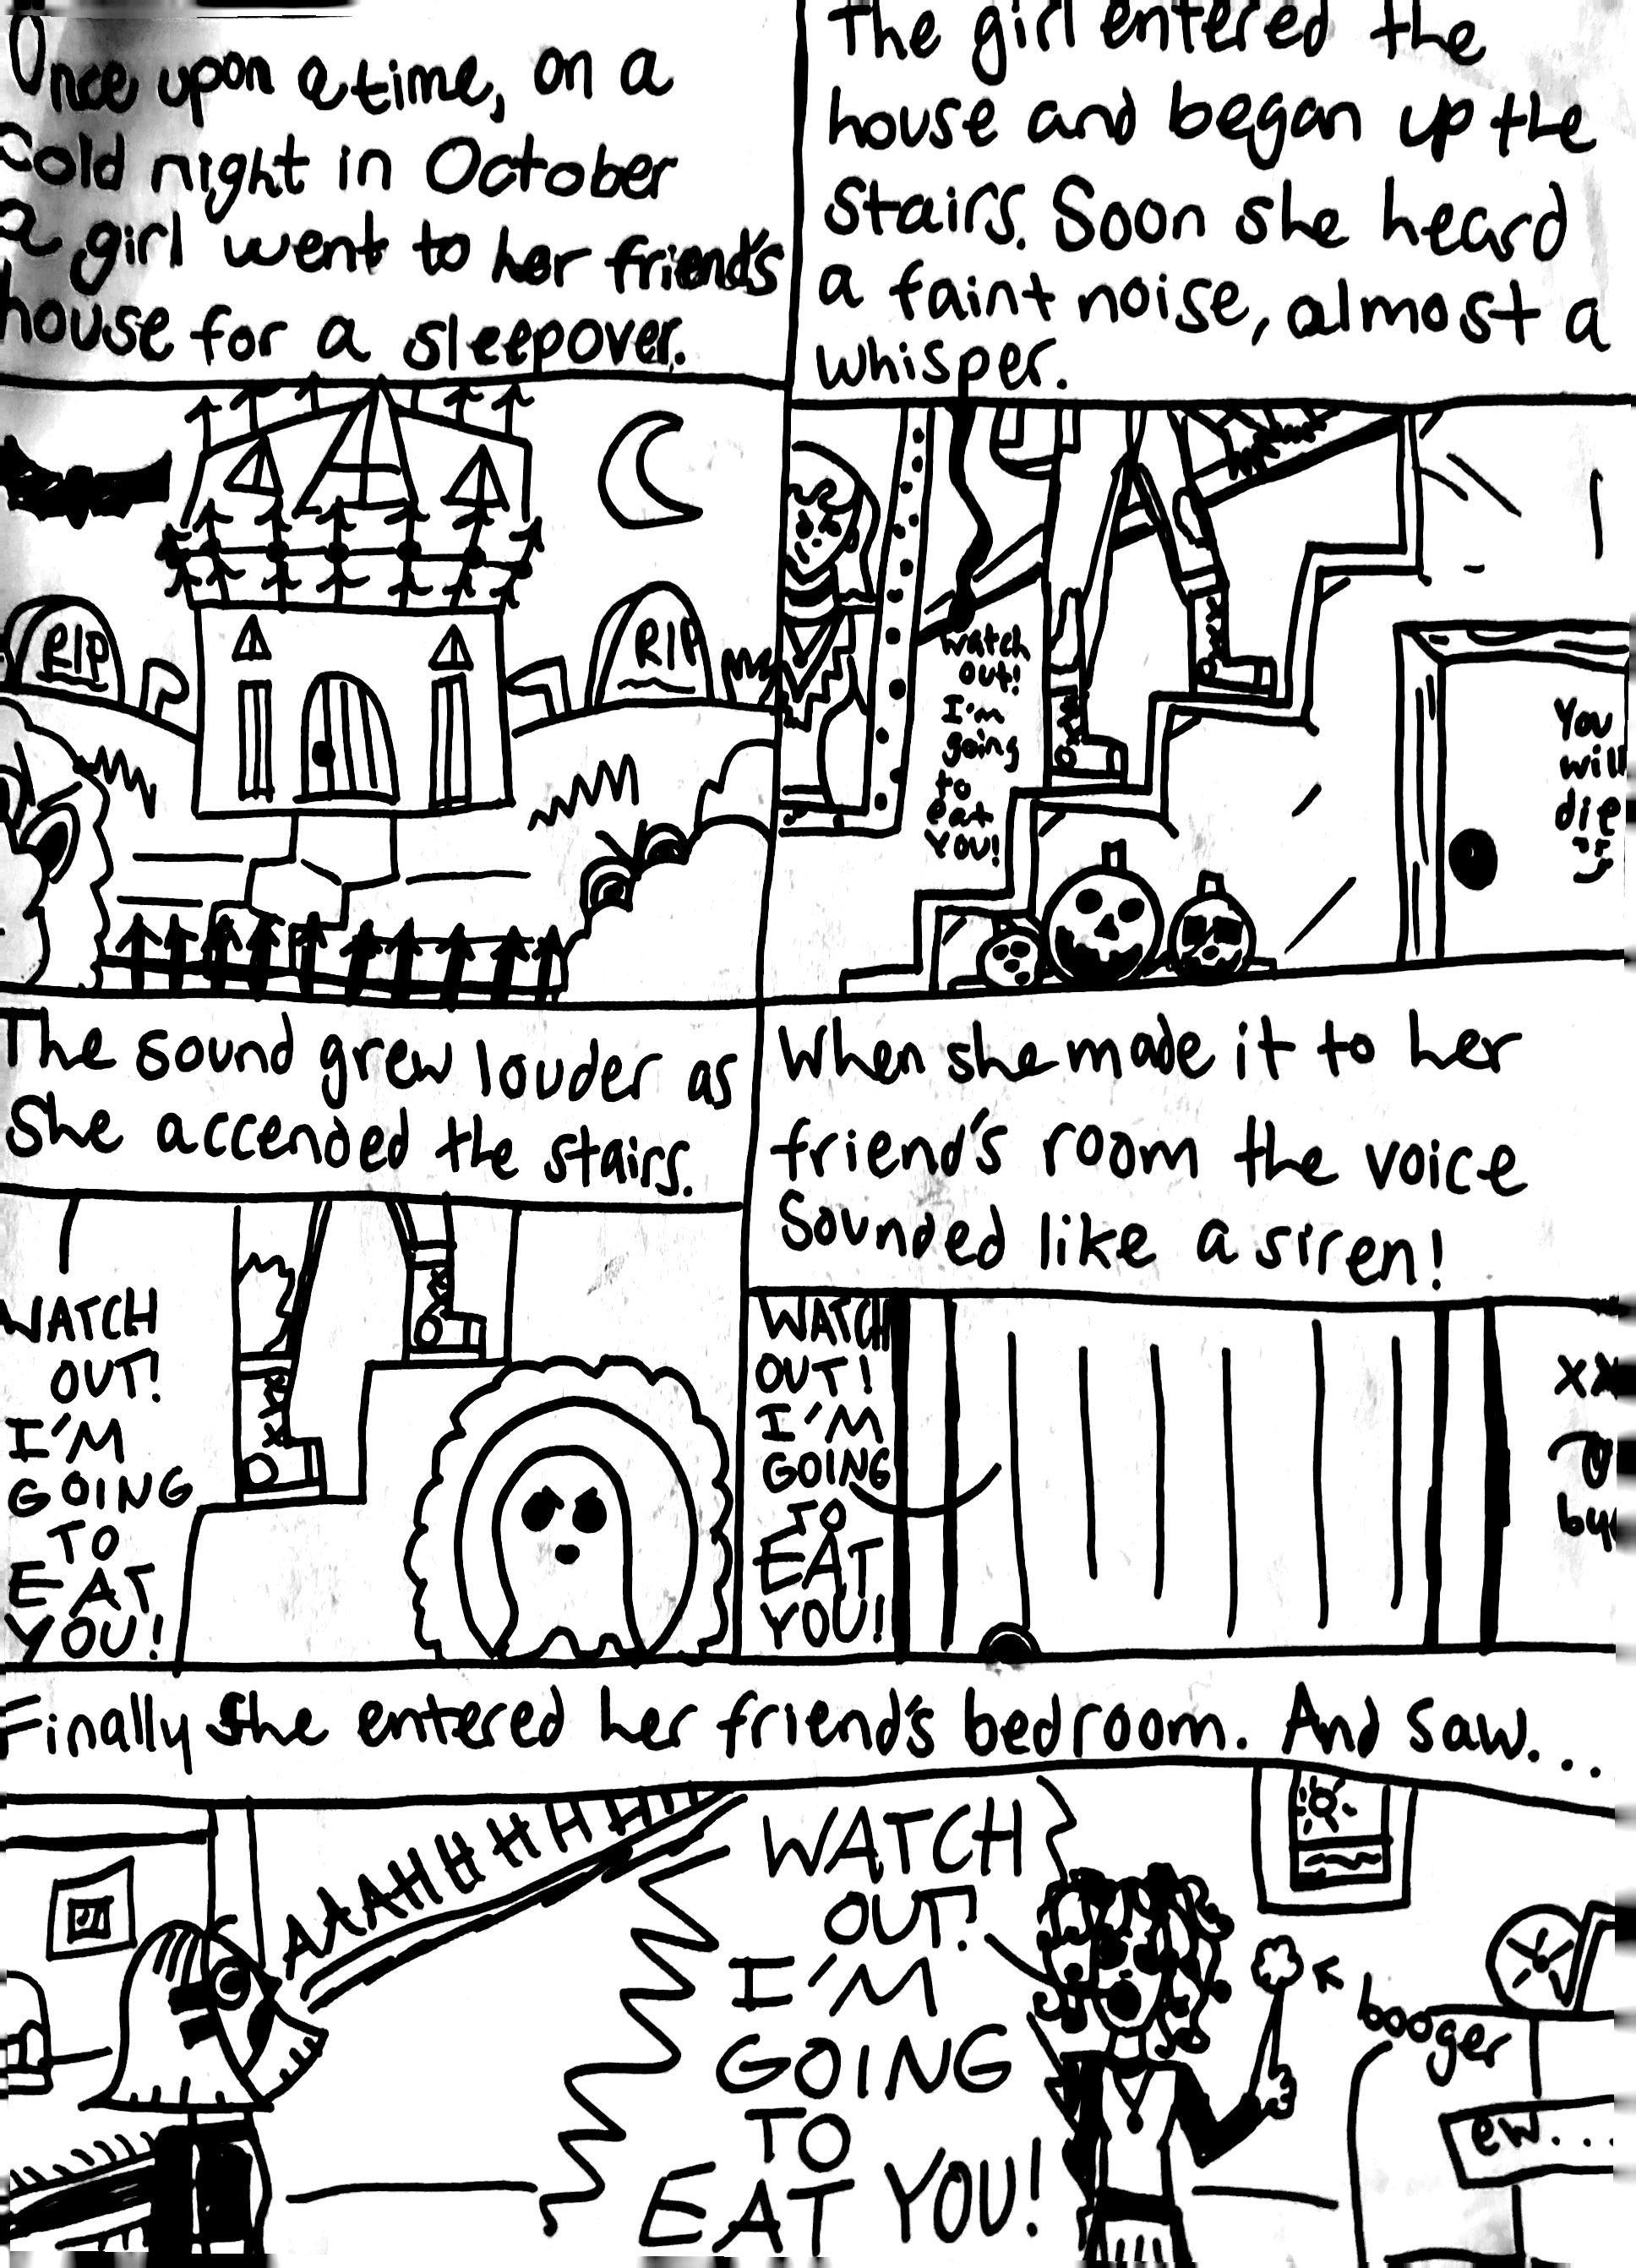 Once upon a time, on a
Cold night in October
a girl went to her friend's
house for a sleepover.
RIP
RIP
The girl entered the
house and began up the
Stairs. Soon she heard
a faint noise, almost a
whisper.
watch
out!
I'm
going
to
eat
you!
You
will
die
The sound grew louder as
She accended the stairs.
WATCH
OUT!
I'M
GOING
TO
EAT
YOU!
When she made it to her
friend's room the voice
Sounded like a siren!
WATCH
OUT!
I'M
GOING
TO
EAT
YOU!
Finally she entered her friend's bedroom. And saw...
AAAHHHHHHH
WATCH
OUT!
I'M
GOING
TO
EAT YOU!
booger
ew...